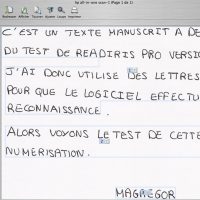 hp all-in-one scan-1 (Page 1 de 1)
C'EST UN TEXTE MANUSCRIT A DE
DU TEST DE READIRIS PRO VERSIO
J'AI DONC UTILISE DES LETTRES
POUR QUE LE LOGICIEL EFFECTU
RECONNAISSANCE.
ALORS VOYONS LE TEST DE CETTE
NUMERISATION.
MAGREGOR